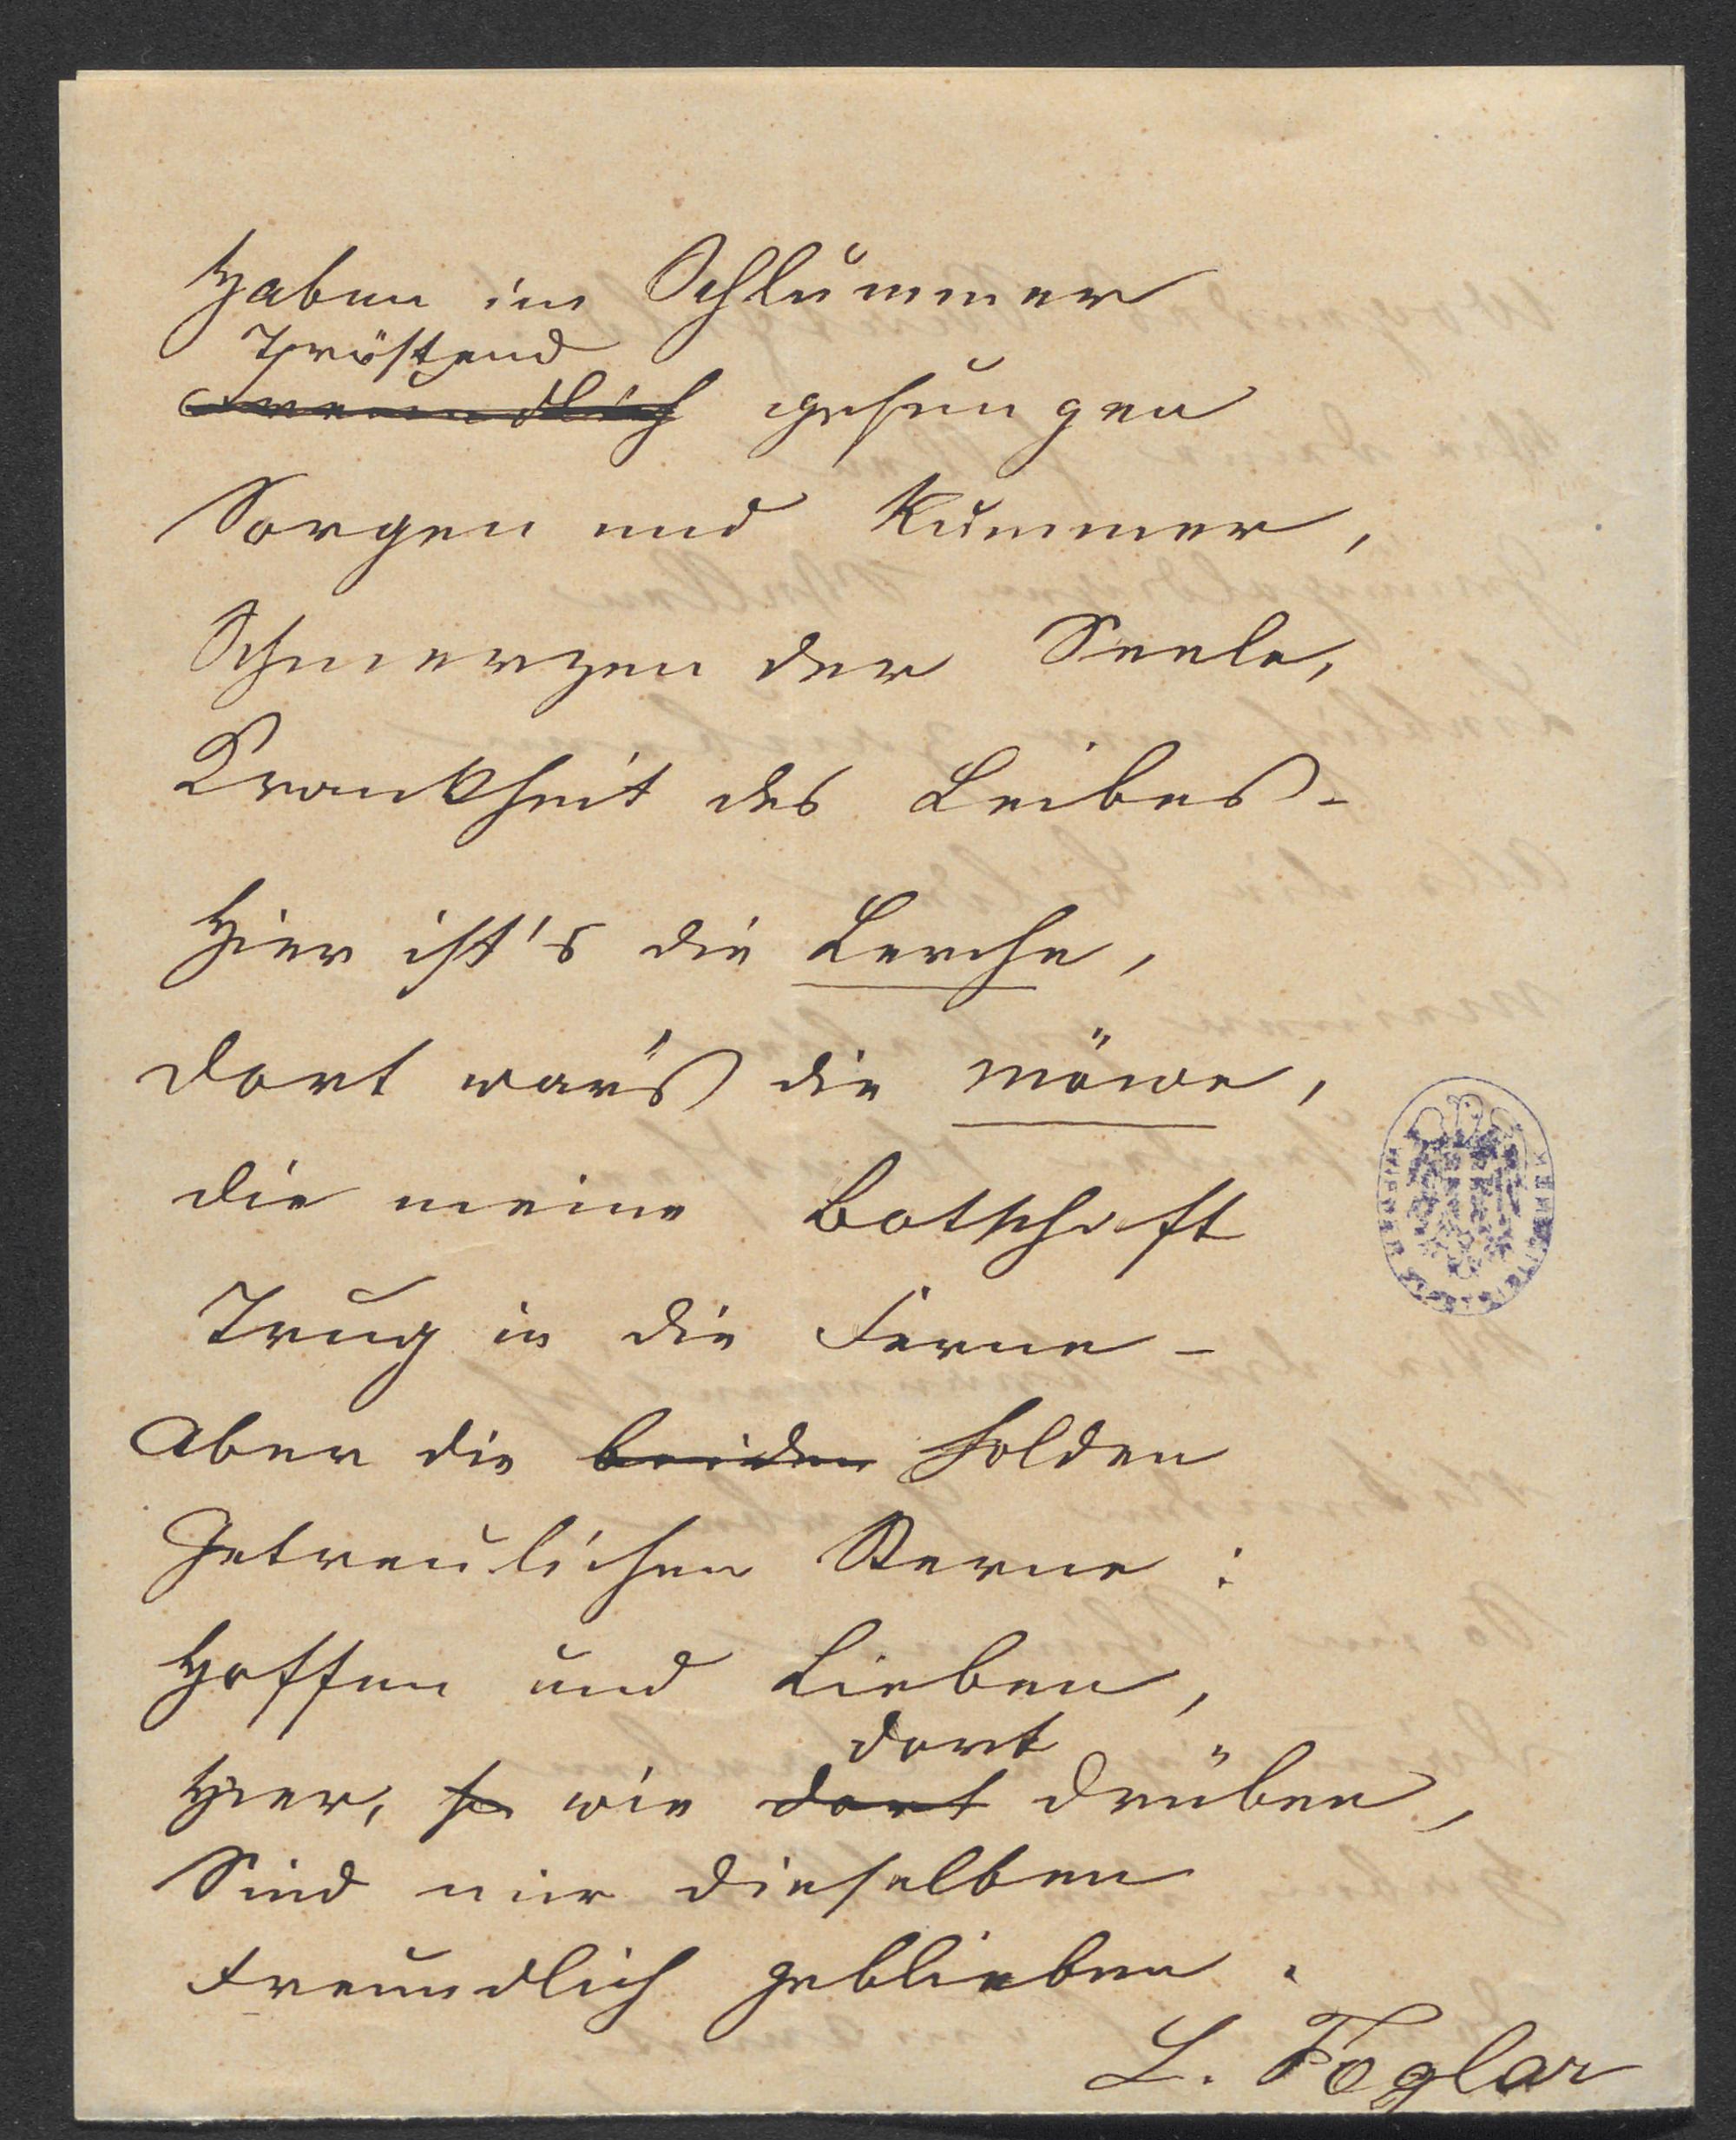 Haben in Schlummer
Tröstend
Freundlich gesungen
Sorgen und Kummer,
Schmerzen der Seele,
Krankheit des Leibes –
Hier ist's die Lerche,
Dort war's die Möwe,
Die meine Botschaft
Trug in die Ferne –
Aber die beiden holden
Getreulichen Sterne:
Hoffen und Lieben,
dort
Hier, so wie dort drüben,
Sind mir dieselben
Freundlich geblieben.
L. Foglar